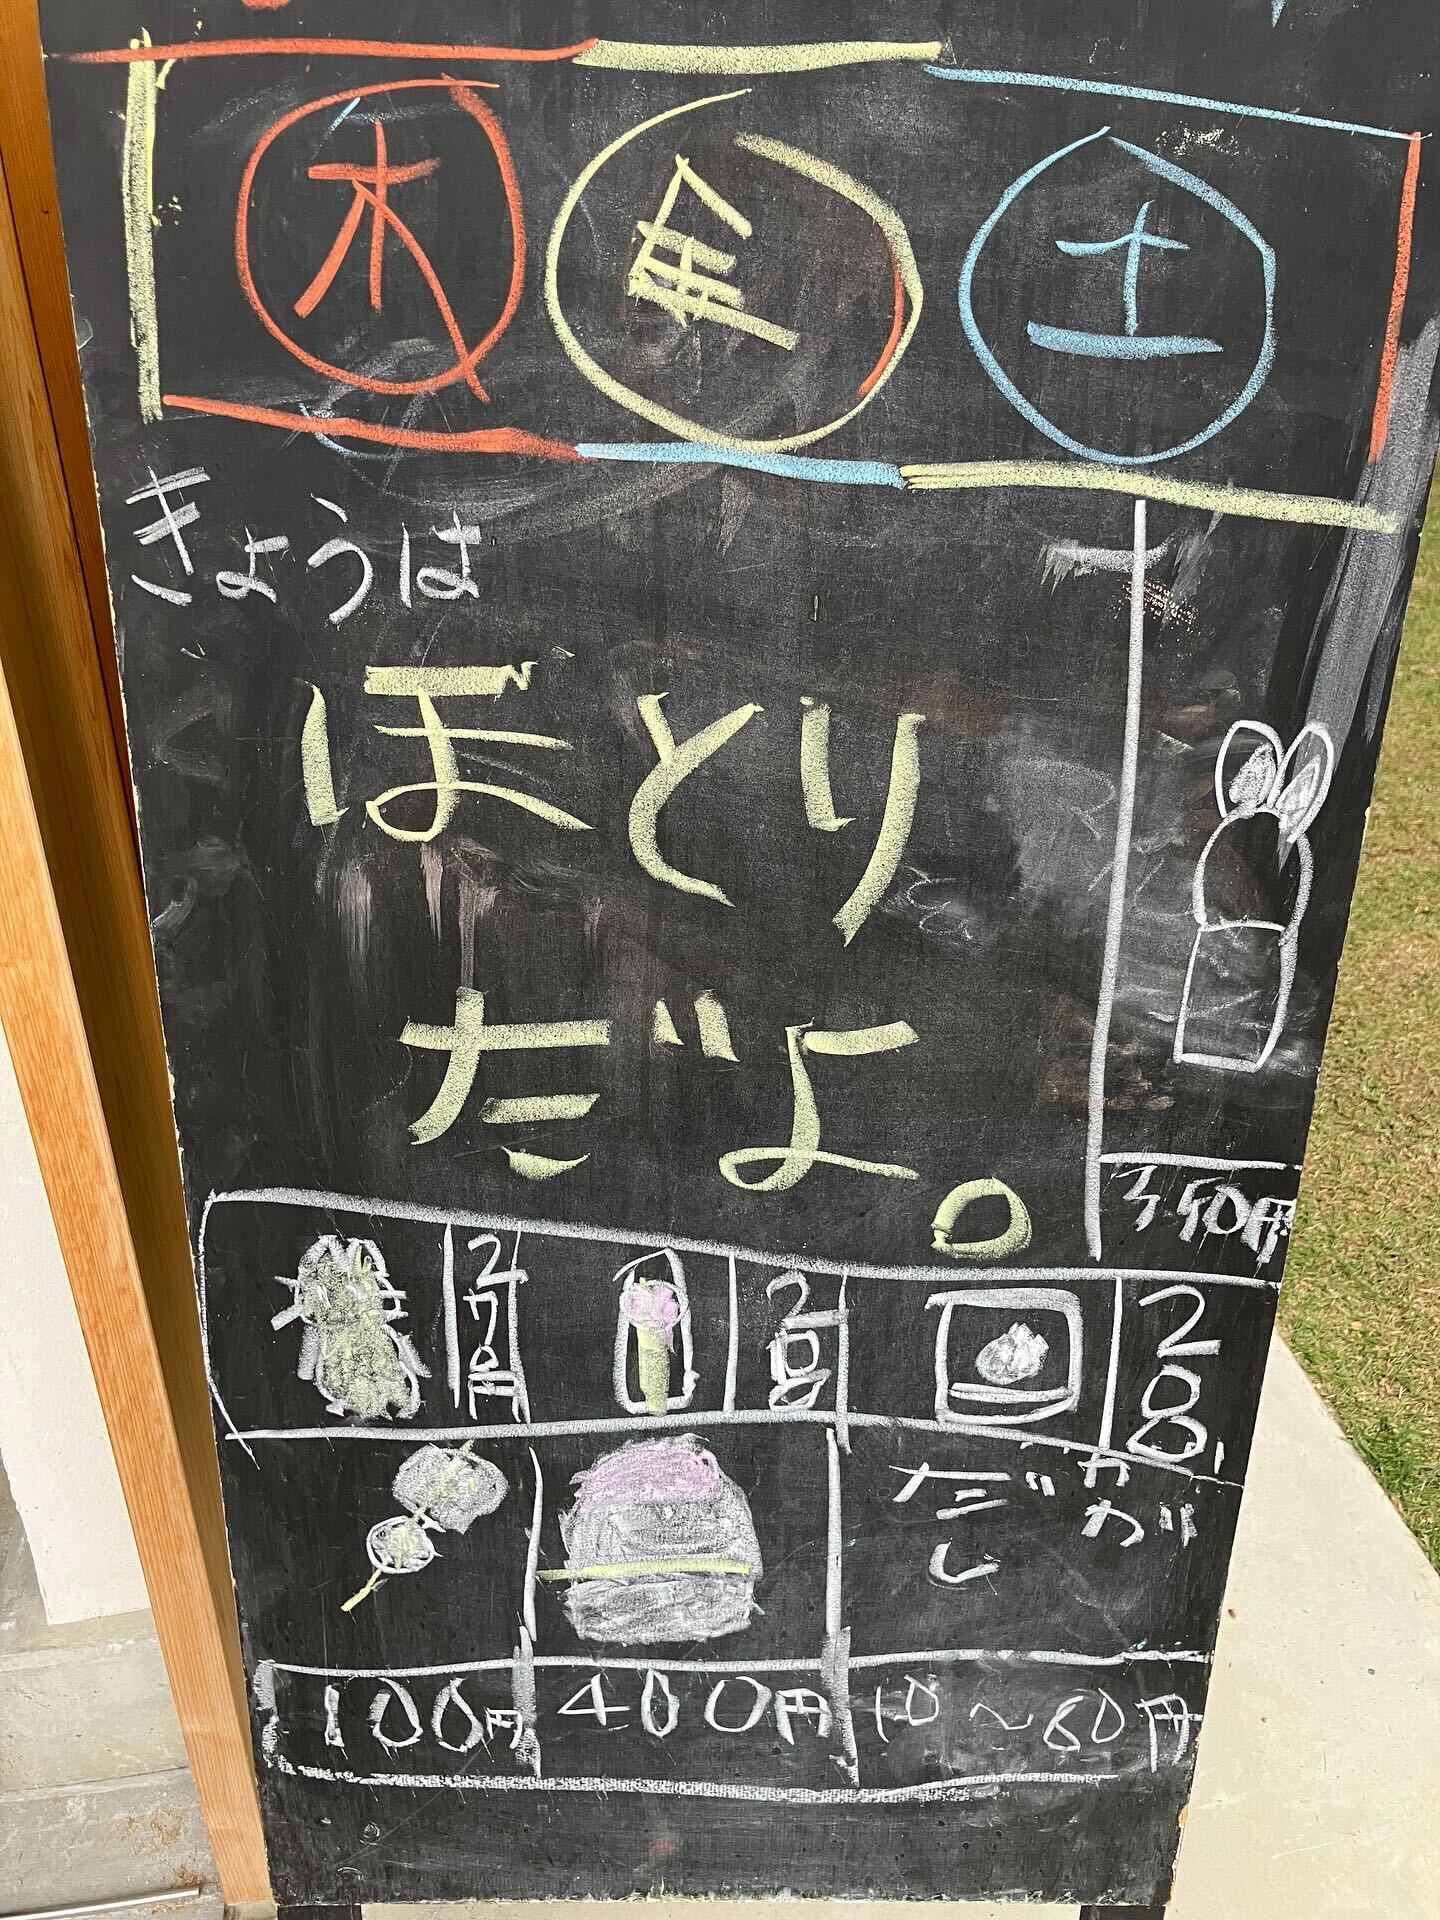 木 金 土
きょうは
ぼとり
だよ。
350円
270円
200
200
だがし
100円
400円
10〜80円